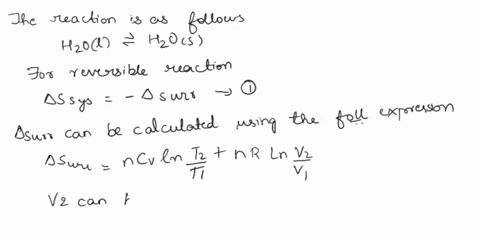 The reaction is as follows
H2O(l) ⇌ H2O(s)
For reversible reaction
ΔSsys = -Δsurr → ①
Δsurr can be calculated using the foll expression
ΔSurr = nCv ln T2/T1 + nR Ln V2/V1
V2 can